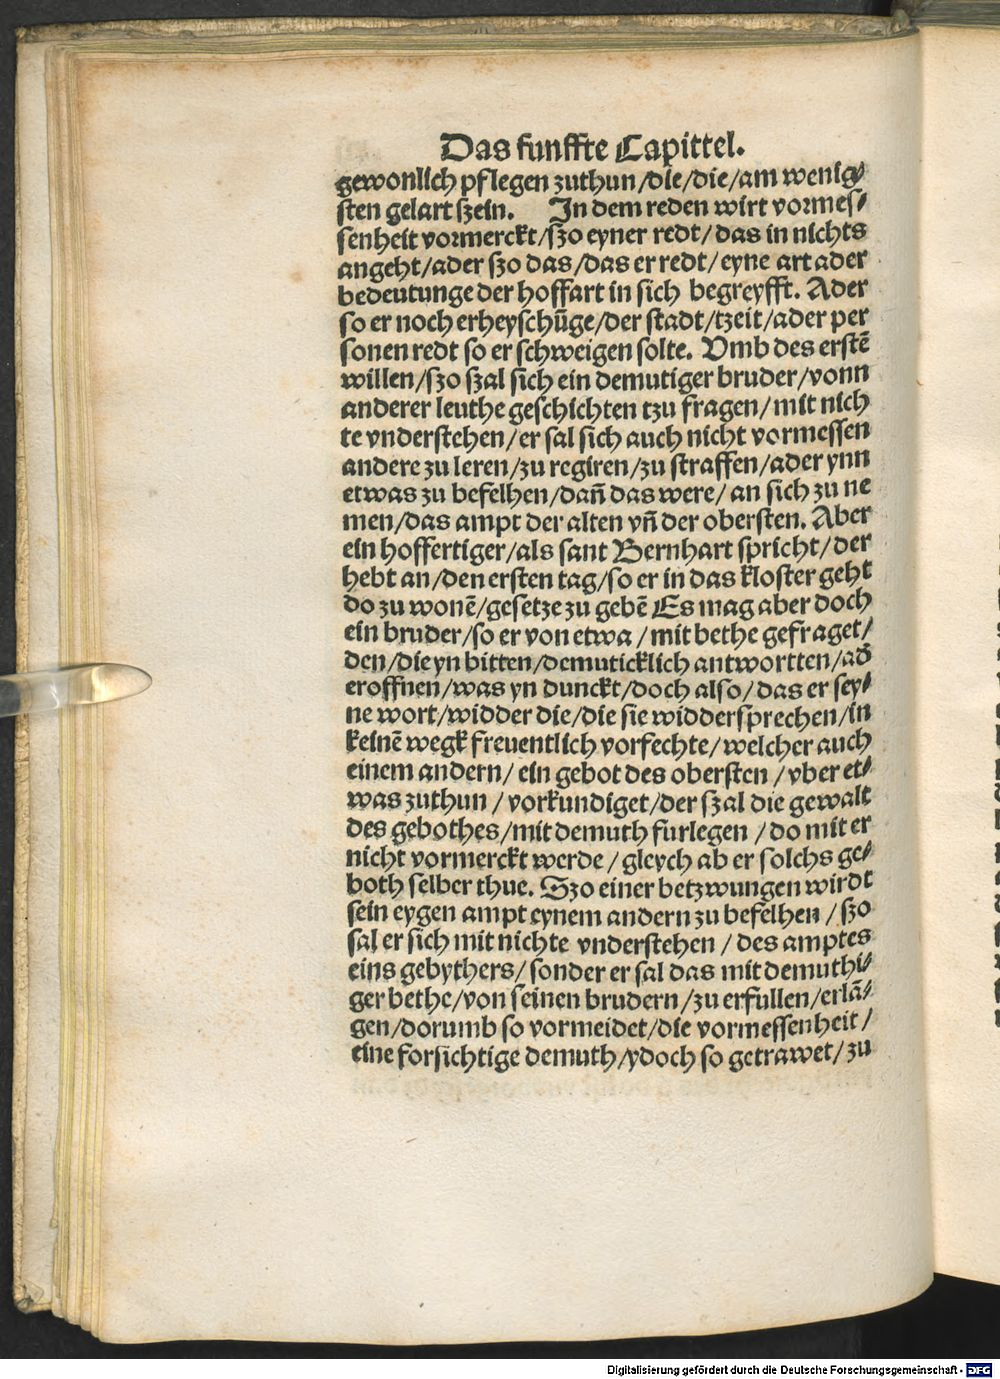 Das funffte Capittel.
gewonlich pflegen zuthun/die/die/am wenig⸗
sten gelart szein. In dem reden wirt vormes⸗
senheit vormerckt/szo eyner redt/das in nichts
angeht/ader szo das/das er redt/eyne art ader
bedeutunge der hoffart in sich begreyfft. Ader
so er noch erheyschũge/der stadt/tzeit/ader per
sonen redt so er schweigen solte. Vmb des erstẽ
willen/szo szal sich ein demutiger bruder/vonn
anderer leuthe geschichten tzu fragen/mit nich
te vnderstehen/er sal sich auch nicht vormessen
andere zu leren/zu regiren/zu straffen/ader ynn
etwas zu befelhen/dañ das were/an sich zu ne
men/das ampt der alten vñ der obersten. Aber
ein hoffertiger/als sant Bernhart spricht/der
hebt an/den ersten tag/so er in das kloster geht
do zu wonẽ/gesetze zu gebẽ Es mag aber doch
ein bruder/so er von etwa/mit bethe gefraget/
den/die yn bitten/demuticklich antwortten/ad̃
eroffnen/was yn dunckt/doch also/das er sey⸗
ne wort/widder die/die sie widdersprechen/in
keinẽ wegk freuentlich vorfechte/welcher auch
einem andern/ein gebot des obersten/vber et⸗
was zuthun/vorkundiget/der szal die gewalt
des gebothes/mit demuth furlegen/do mit er
nicht vormerckt werde/gleych ab er solchs ge⸗
both selber thue. Szo einer betzwungen wirdt
sein eygen ampt eynem andern zu befelhen/szo
sal er sich mit nichte vnderstehen/des amptes
eins gebythers/sonder er sal das mit demuthi⸗
ger bethe/von seinen brudern/zu erfullen/erlã⸗
gen/dorumb so vormeidet/die vormessenheit/
eine forsichtige demuth/ydoch so getrawet/zu
Digitalisierung gefördert durch die Deutsche Forschungsgemeinschaft - DFG